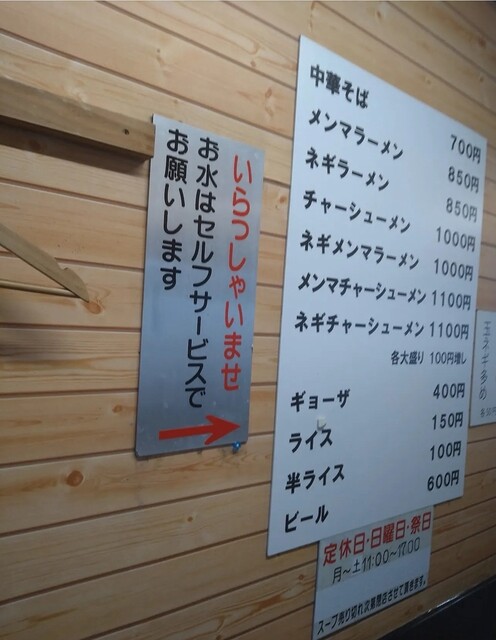 いらっしゃいませ
お水はセルフサービスで
お願いします
中華そば 700円
メンマラーメン 850円
ネギラーメン 850円
チャーシューメン 1000円
ネギメンマラーメン 1000円
メンマチャーシューメン 1100円
ネギチャーシューメン 1100円
各大盛り 100円増し
ギョーザ 400円
ライス 150円
半ライス 100円
ビール 600円
玉ネギ多め
定休日・日曜日・祭日
月〜土 11:00〜17:00
スープ売り切れ次第閉店させて頂きます。